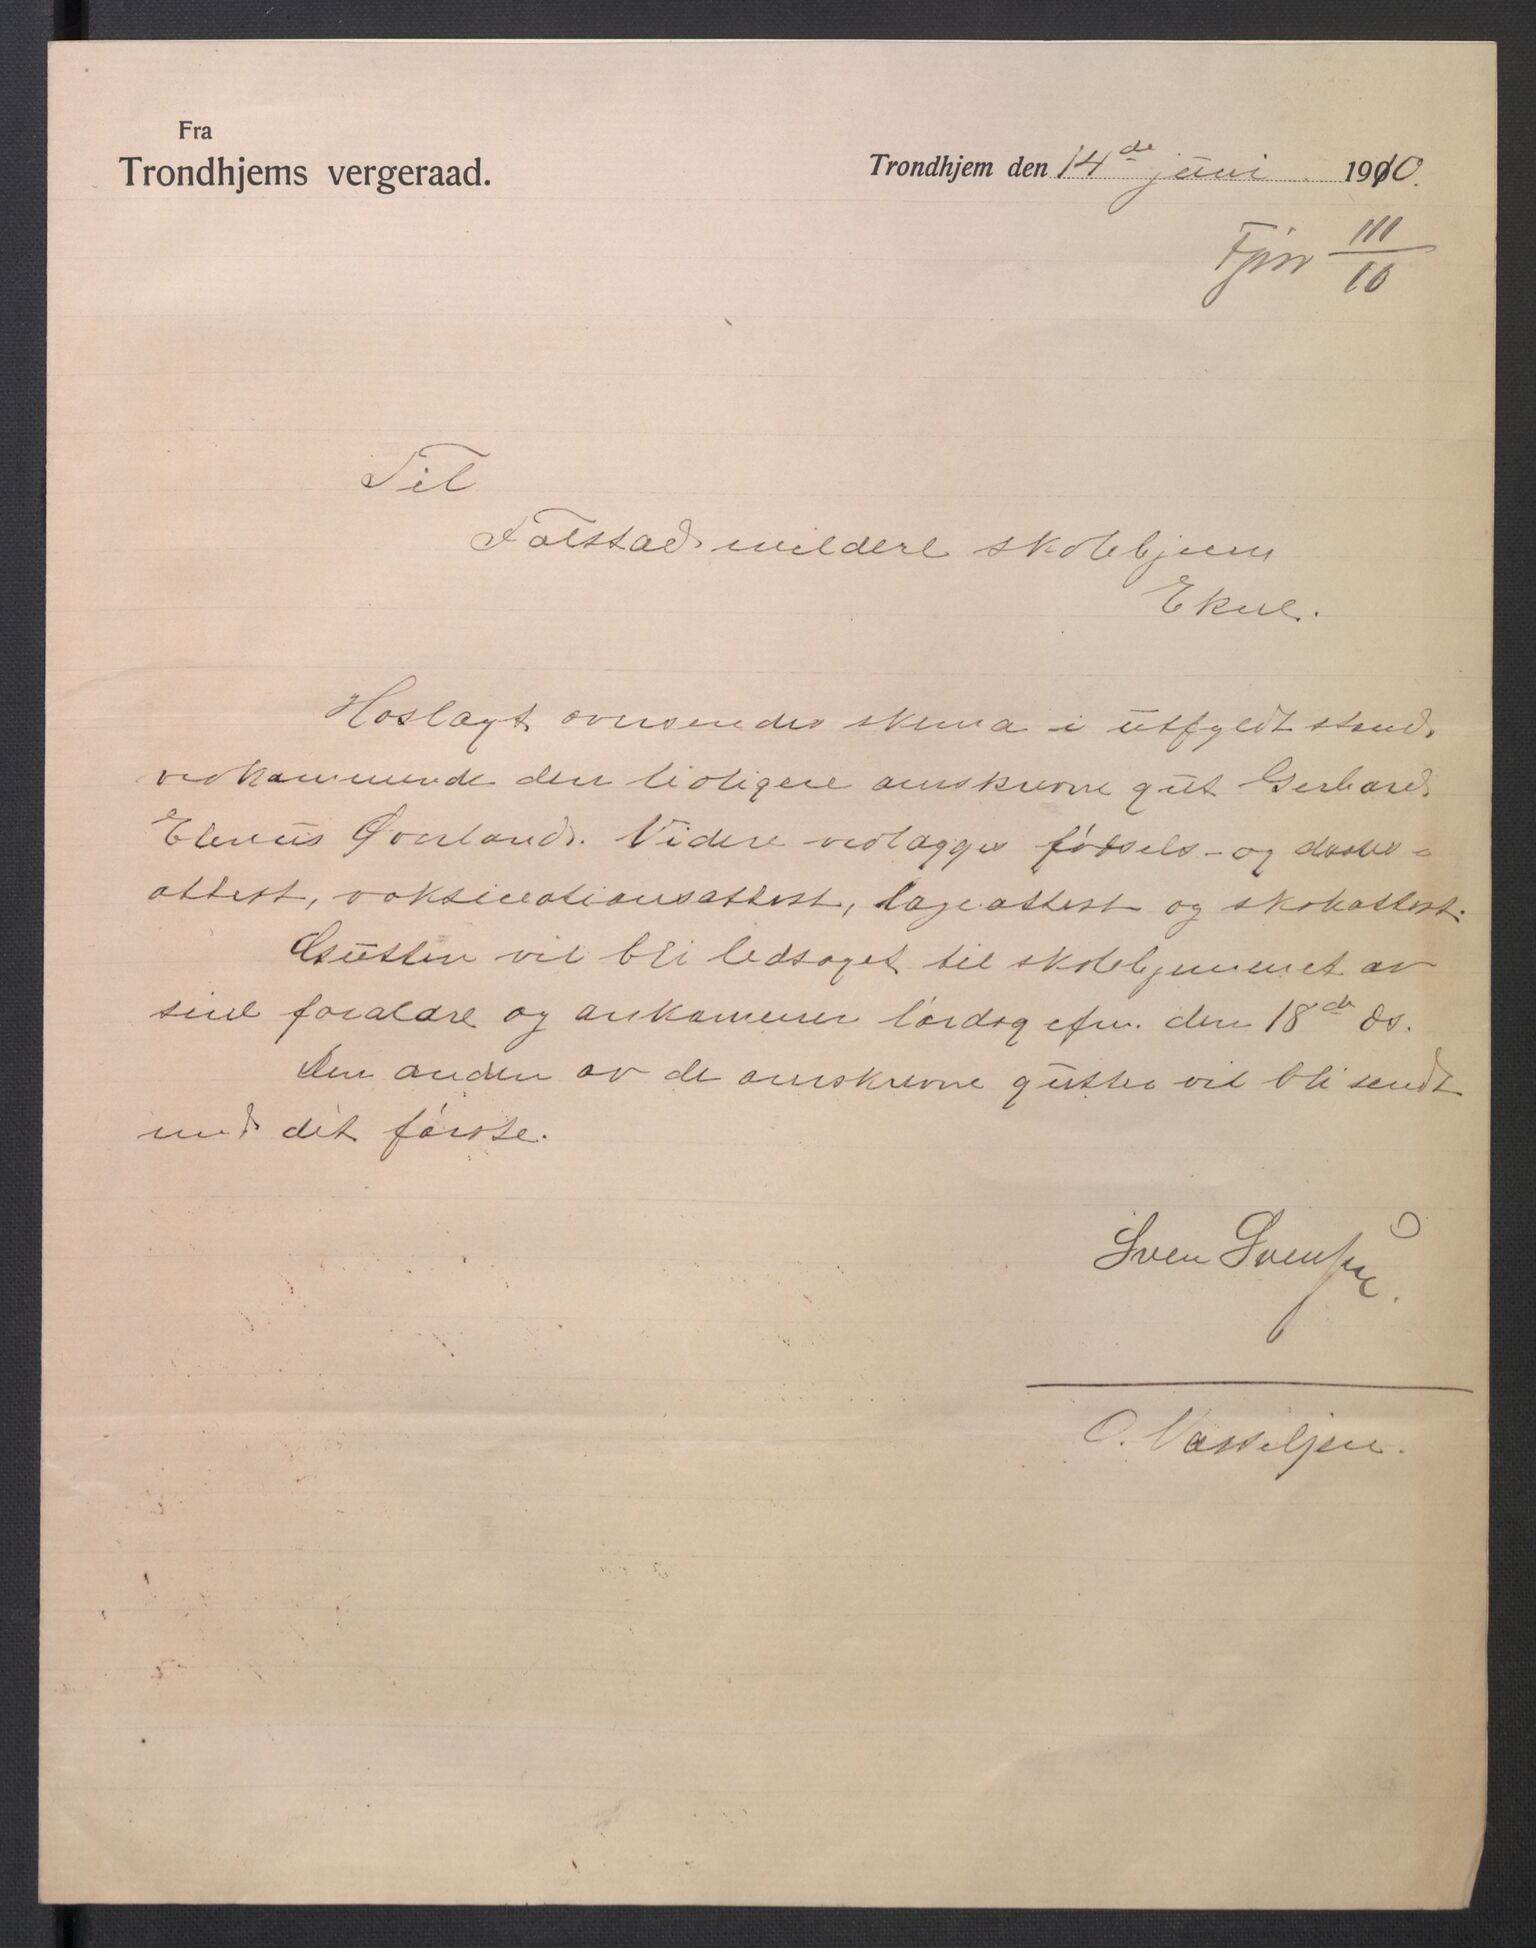 Fra
Trondhjems vergeraad.
Trondhjem den 14de juni 1910.
111
10
Til
Falstad mildere skolehjem
Ekne.
Hoslagt oversendes skema i utfyldt stand
vedkommende den tidligere omskrevne gut Gerhard
Elenius Øverland. Videre vedlægges fødsels- og daabs-
attest, vaksinationsattest, lægeattest og skoleattest.
Gutten vil bli ledsaget til skolehjemmet av
sine forældre og ankommer lørdag efm. den 18de ds.
Den anden av de omskrevne gutter vil bli sendt
med det første.
Sven Svensen.
O. Vasseljen.